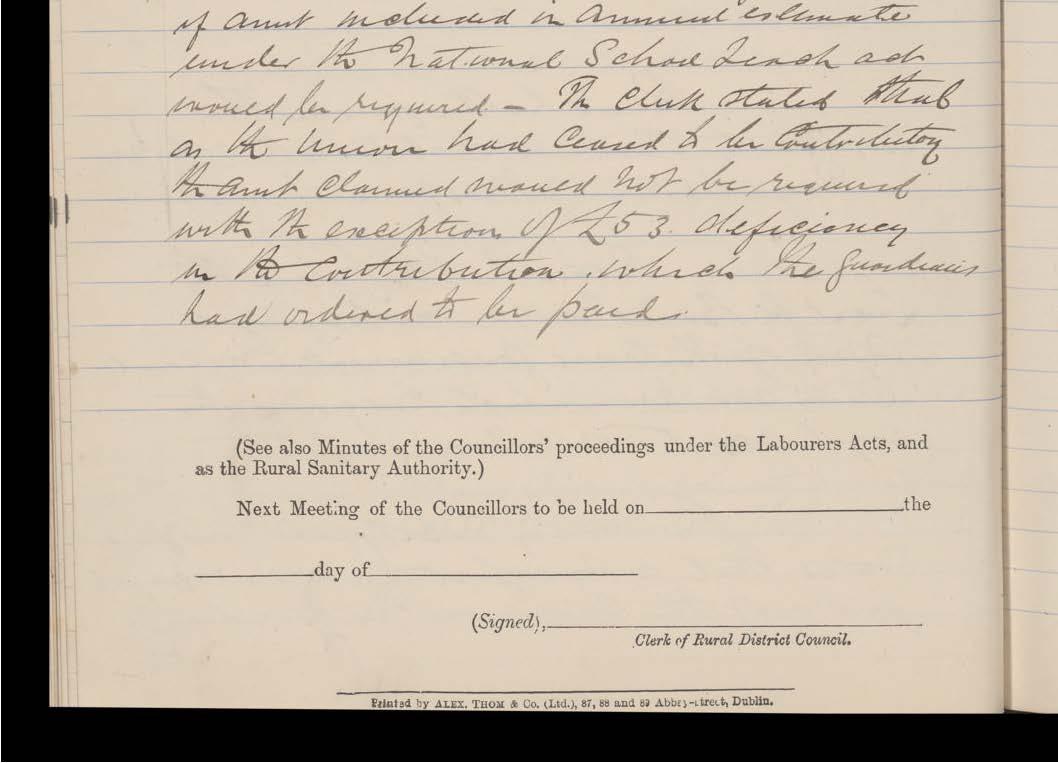 of amt included in annual estimate
under the National School Teach act
would be required – The Clerk stated that
as the Union had Ceased to be Contributory
the amt claimed would not be required
with the exception of £53. deficiency
in the contribution. which the Guardians
had ordered to be paid.
(See also Minutes of the Councillors' proceedings under the Labourers Acts, and
as the Rural Sanitary Authority.)
Next Meeting of the Councillors to be held on the
day of
(Signed),
Clerk of Rural District Council.
Printed by ALEX. THOM & Co. (Ltd.), 87, 88 and 89 Abbey-street, Dublin.